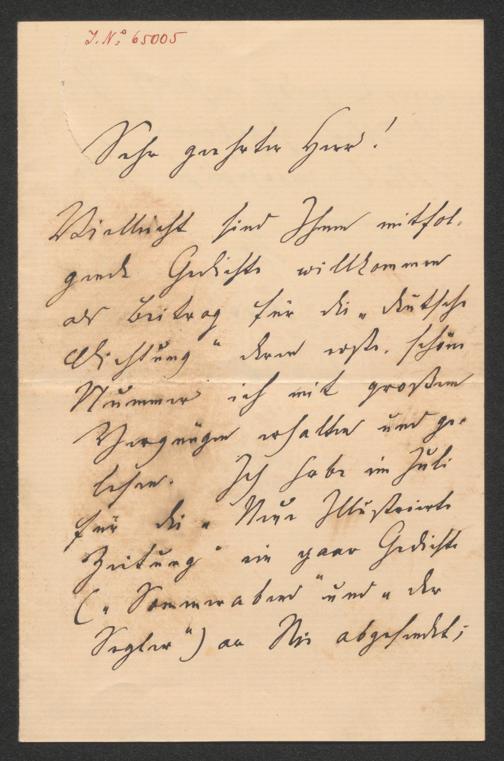 J. No 65005
Sehr geehrter Herr!
Vielleicht sind Ihnen mitfol-
gende Gedichte willkommen
als Beitrag für die „deutsche
Dichtung" deren erste, schöne
Nummer ich mit großem
Vergnügen erhalten und ge-
lesen. Ich habe im Juli
für die „Neue Illustrierte
Zeitung" ein paar Gedichte
(„Sommerabend" und „der
Segler") an Sie abgesendet;